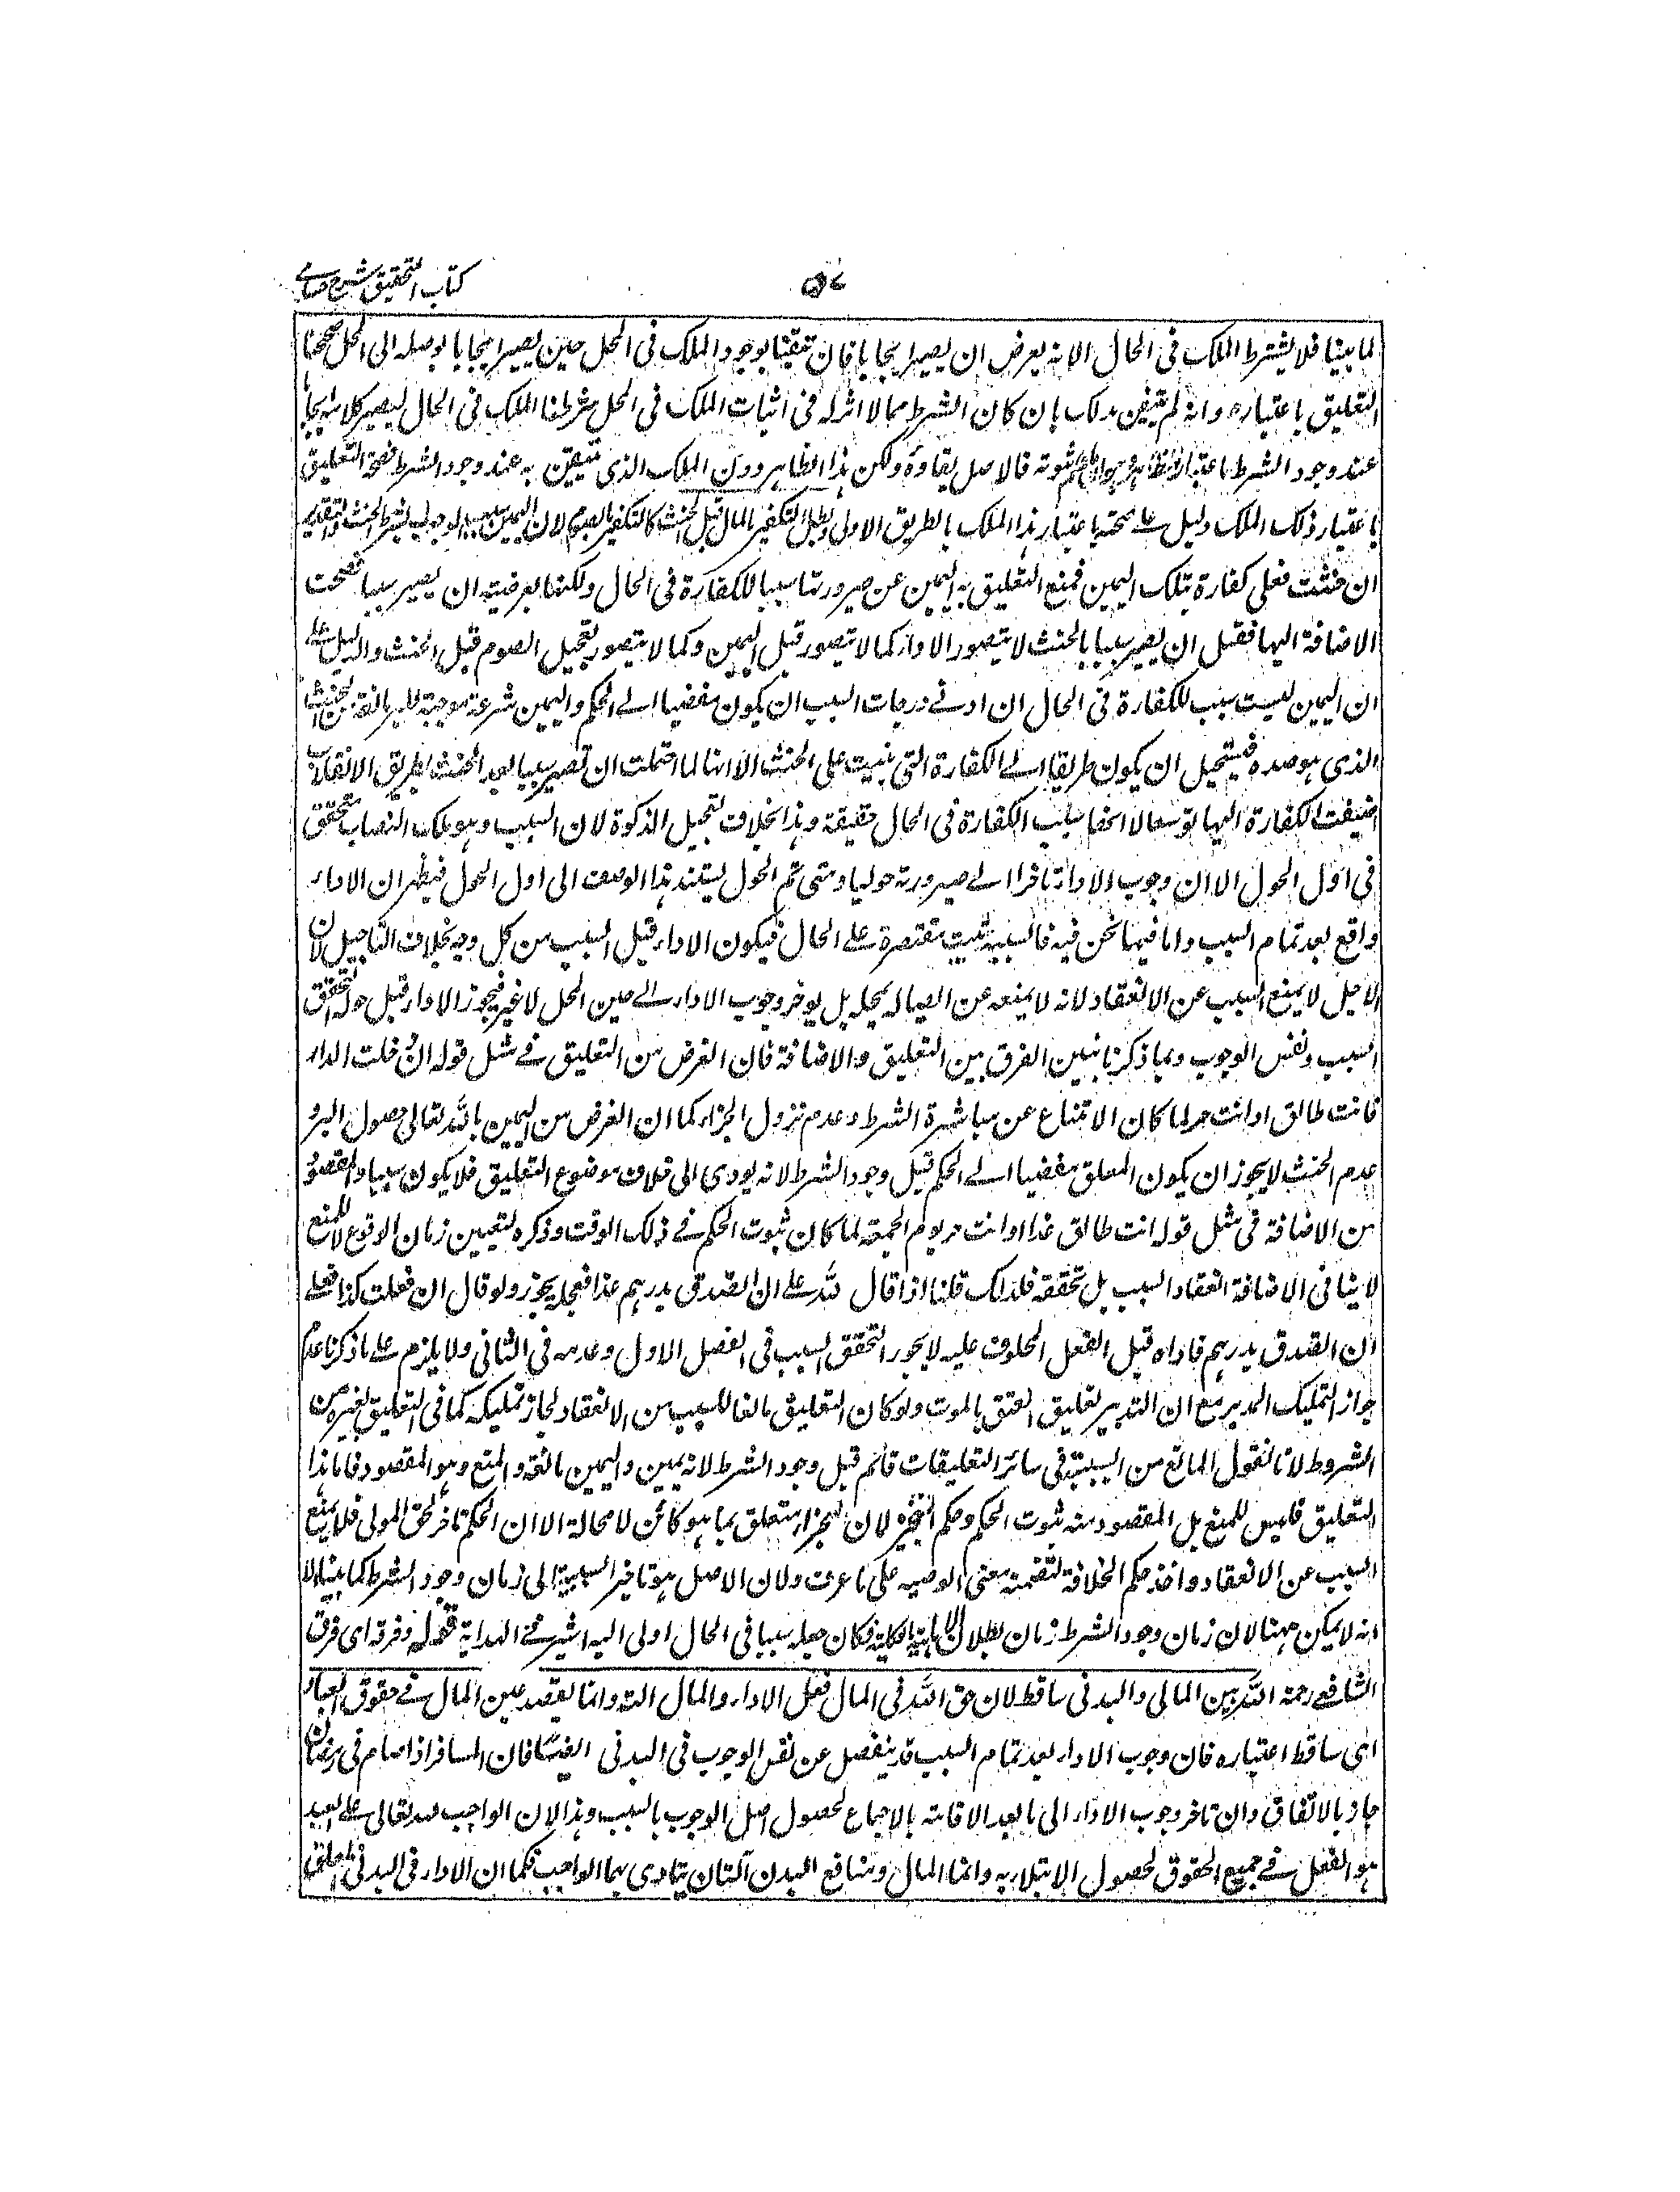 ٥٧ كتاب التحقيق شرح حسامے
لما بينا فلا يشترط الملك فى الحال الا انه يعرض ان يصير ايجابا فان تيقنا بوجود الملك فى المحل حين يصير ايجابا بوصله الى المحل صححنا
التعليق باعتباره وان لم نتيقن بذلك بان كان الشرط مما لا اثر له فى اثبات الملك فى المحل شرطنا الملك فى الحال ليصير كلامه ايجابا
عند وجود الشرط باعتبار الظاهر وهو ان ما علم ثبوته فالاصل بقاؤه ولكن هذا الظاهر دون الملك الذى نتيقن به عند وجود الشرط فصحة التعليق
باعتبار ذلك الملك دليل على صحته باعتبار هذا الملك بالطريق الاولى وبطل التكفير بالمال قبل الحنث كالتكفير بالصوم لان اليمين سبب الوجوب بشرط الحنث والتقدير
ان حنثت فعلى كفارة بتلك اليمين فمنع التعليق به اليمين عن صيرورتها سببا للكفارة فى الحال ولكنها بعرضية ان يصير سببا فصحت
الاضافة اليها فقبل ان يصير سببا بالحنث لا يتصور الاداء كما لا يتصور قبل اليمين وكما لا يتصور تعجيل الصوم قبل الحنث والدليل على
ان اليمين ليست بسبب للكفارة فى الحال ان ادنے درجات السبب ان يكون مفضيا الے الحكم واليمين شرعت موجبة للبر مانعة عن الحنث
الذى هو ضده فيستحيل ان يكون طريقا الے الكفارة التى بنيت على الحنث الا انها لما احتملت ان تصير سببا بعد الحنث بطريق الانقلاب
اضيفت الكفارة اليها توسعا لا انها سبب الكفارة فى الحال حقيقة وهذا بخلاف تعجيل الزكوة لان السبب وهو ملك النصاب متحقق
فى اول الحول الا ان وجوب الاداء تاخر الے صيرورته حوليا ومتى تم الحول يستند هذا الوصف الى اول الحول فيظهر ان الاداء
واقع بعد تمام السبب واما فيما نحن فيه فالسببية تثبت مقتصرة على الحال فيكون الاداء قبل السبب من كل وجه بخلاف التاجيل لان
الاجل لا يمنع السبب عن الانعقاد لانه لا يمنعه عن اتصاله بمحله بل يوخر وجوب الاداء الے حين المحل لا غير فيجوز الاداء قبل حوله لتحقق
السبب ونفس الوجوب وبما ذكرنا تبين الفرق بين التعليق والاضافة فان الغرض من التعليق فے مثل قوله ان دخلت الدار
فانت طالق او انت حر لما كان الامتناع عن مباشرة الشرط وعدم نزول الجزاء كما ان الغرض من اليمين بالله تعالى حصول البر و
عدم الحنث لا يجوز ان يكون المعلق مفضيا الے الحكم قبل وجود الشرط لانه يودى الى خلاف موضوع التعليق فلا يكون سببا والمقصود
من الاضافة فى مثل قوله انت طالق غدا او انت حر يوم الجمعة لما كان ثبوت الحكم فے ذلك الوقت وذكره لتعيين زمان الوقوع لا للمنع
لا ينافى الاضافة انعقاد السبب بل تحققه فلذلك قلنا اذا قال لله على ان اتصدق بدرهم غدا فعجله يجوز ولو قال ان فعلت كذا فعلے
ان اتصدق بدرهم فاداه قبل الفعل المحلوف عليه لا يجوز لتحقق السبب فى الفصل الاول وعدمه فى الثانى ولا يلزم على ما ذكرنا عدم
جواز التمليك المدبر مع ان التدبير تعليق العتق بالموت ولو كان التعليق مانعا للسبب من الانعقاد لجاز تمليكه كما فى التعليق بغيره من
الشروط لانا نقول المانع من السببية فى سائر التعليقات قائم قبل وجود الشرط لانه يمين واليمين مانعة والمنع وهو المقصود فاما هذا
التعليق فليس للمنع بل المقصود منه ثبوت الحكم وحكم لان الجزاء متعلق بما هو كائن لا محالة الا ان الحكم تاخر لحق المولى فلا يمنع
السبب عن الانعقاد واخذ حكم الخلافة لتضمنه معنى الوصيه على ما عرف ولان الاصل هو تاخير السببية الى زمان وجود الشرط كما بينا الا
انه لا يمكن ههنا لان زمان وجود الشرط زمان بطلان الاهلية فكان جعله سببا فى الحال اولى اليه اشير فے الهداية قوله وفرقه اى فرق
الشافعے رحمه الله بين المالى والبدنى ساقط لان حق الله فى المال فعل الاداء والمال آلته وانما يقصد عين المال فے حقوق العباد
اى ساقط اعتباره فان وجوب الاداء بعد تمام السبب قد ينفصل عن نفس الوجوب فى البدنى ايضا فان المسافر اذا صام فى رمضان
جاز بالاتفاق وان تاخر وجوب الاداء الى ما بعد الاقامة بالاجماع لحصول اصل الوجوب بالسبب وهذا لان الواجب لله تعالى على العبد
هو الفعل فے جميع الحقوق لحصول الابتلاء به وانما المال ومنافع البدن آلتان يتادى بهما الواجب فكما ان الاداء فى البدنى